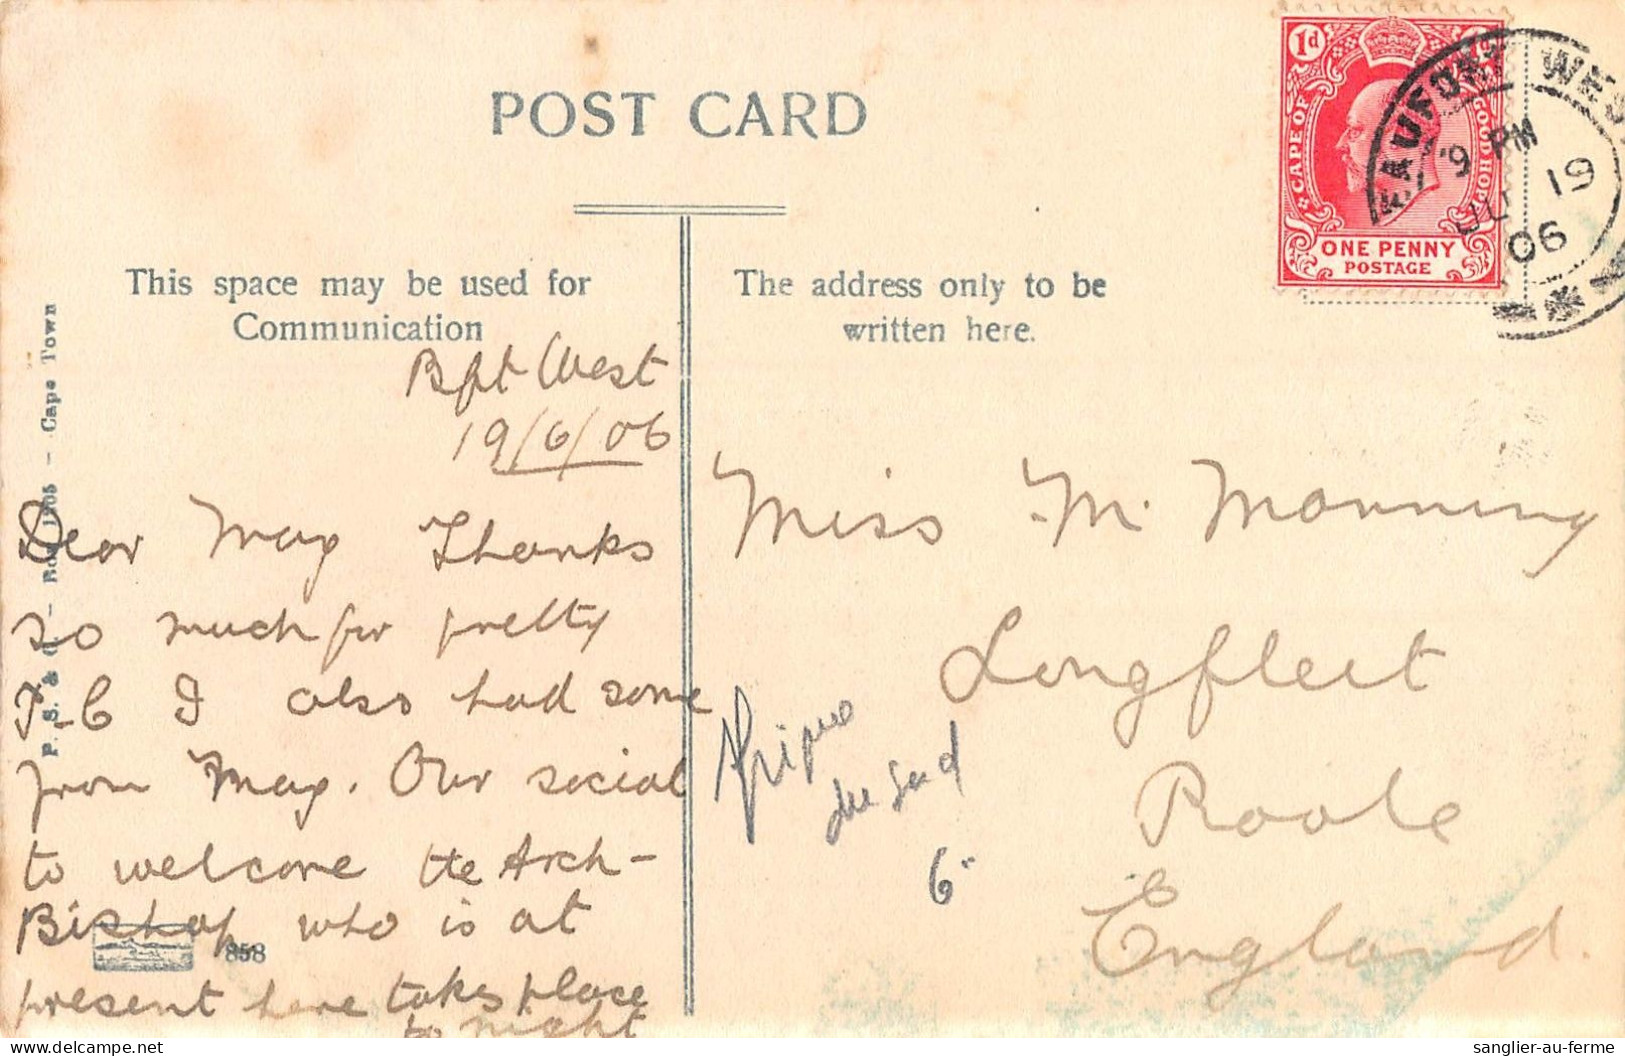 POST CARD
1d
CAPE OF GOOD HOPE
ONE PENNY
POSTAGE
BEAUFORT WEST
9 PM
JU 19
06
This space may be used for
Communication
The address only to be
written here.
P. S. & C. - 1905 - Cape Town
Bft West
19/6/06
Dear May Thanks
so much for pretty
P-C I also had some
from May. Our social
to welcome the Arch-
Bishop who is at
present here takes place
to night
858
Miss M. Manning
Longfleet
Poole
England.
Afrique
du Sud
6
sanglier-au-ferme